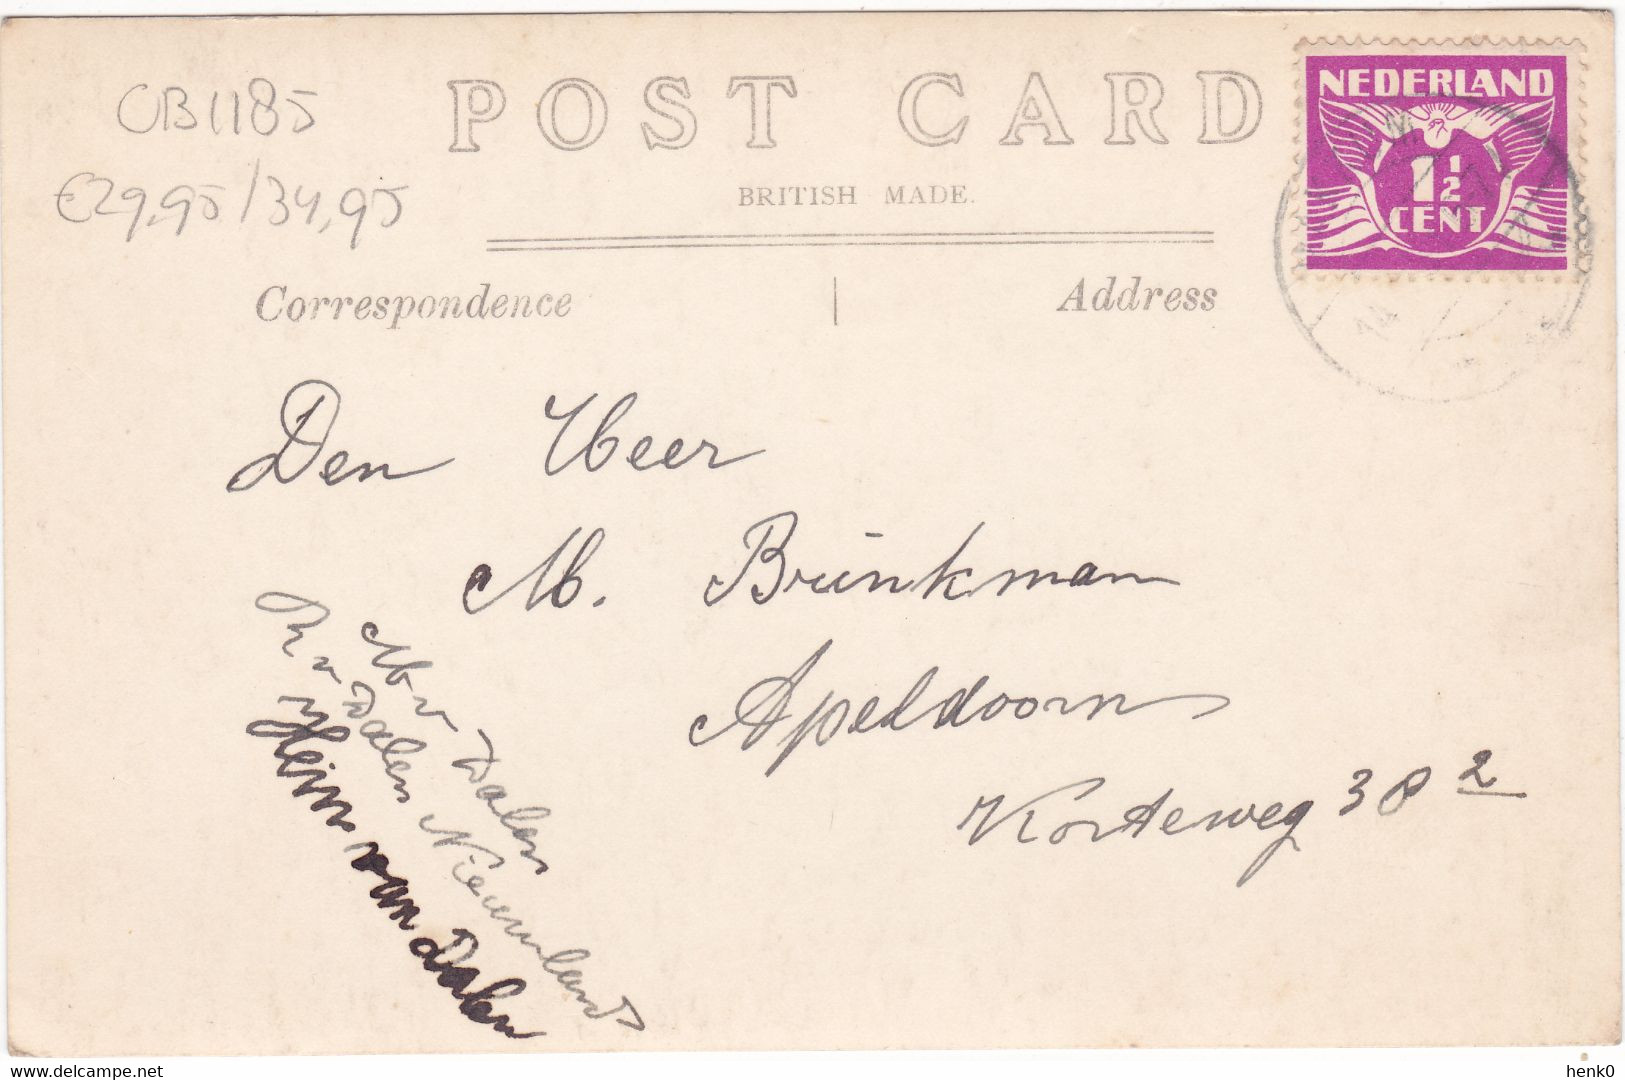 OB1185
€29,95/34,95
POST CARD
BRITISH MADE.
Correspondence
Address
NEDERLAND
1½
CENT
Den Heer
M. Brinkman
Apeldoorn
Korteweg 38 2
M v Dalen
v Dalen Nieuwland
Hein van Dalen
www.delcampe.net
henk0